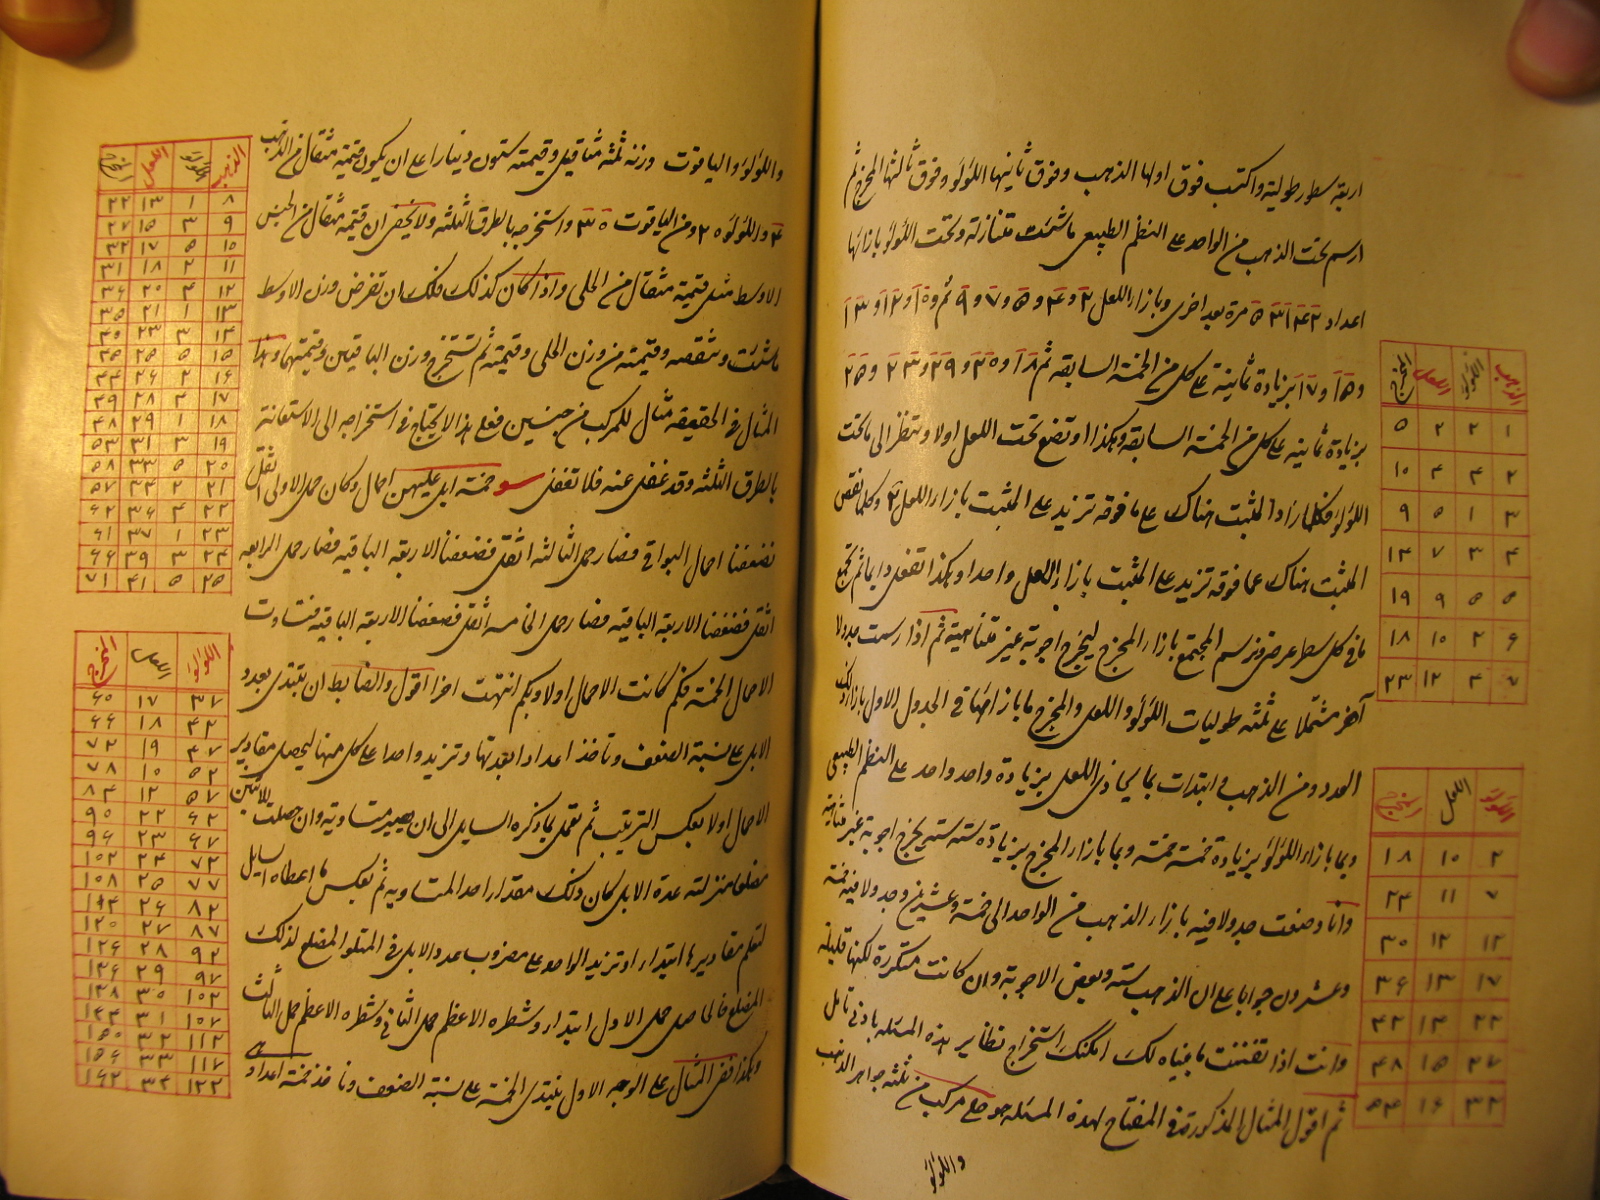 اربعة سطور طولية واكتب فوق اولها الذهب وفوق ثانيها اللؤلؤ وفوق ثالثها المخرج ثم
ارسم تحت الذهب من الواحد على النظم الطبيعى ما شئت متنازلة وتحت اللؤلؤ بازائها
اعداد ٢ ٤ ١ ٣ ٥ مرة بعد اخرى وبازاء اللعل ٢ و ٤ و ٥ و ٧ و ٩ ثم و ١٠ و ١٢ و ١٣
و ١٥ و ١٧ بزيادة ثمانية على كل من الخمسة السابقة ثم ١٨ و ٢٠
بزيادة ثمانيه على كل من الخمسة السابقة وهكذا او تضع تحت اللعل اولا وتنظر الى ما تحت
اللؤلؤ فكلما زاد المثبت هناك على ما فوقه تزيد على المثبت بازاء اللعل ٢ وكلما نقص
المثبت هناك عما فوقه تزيد على المثبت بازاء اللعل واحدا وهكذا تفعل دايما ثم تجمع
ما فى كل سطر عرضى وترسم المجتمع بازاء المخرج ليخرج اجوبة غير متناهية ثم اذا رسمت جدولا
آخر مشتملا على ثلثه طوليات اللؤلؤ واللعل والمخرج ما بازائها فى الجدول الاول بازاء ذلك
العدد من الذهب وابتدات بما يحاذى اللعل بزيادة واحد واحد على النظم الطبيعى
وبما بازاء اللؤلؤ بزيادة خمسة خمسة وبما بازاء المخرج بزيادة ستة ستة يخرج اجوبة غير متناهية
وانا وضعت جدولا فيه بازاء الذهب من الواحد الى خمسة وعشرين وجدولا فيه خمسة
وعشرون جوابا على ان الذهب ستة وبعض الاجوبة وان كانت متكررة لكنها قليلة
وانت اذا تفننت ما بيناه لك امكنك استخراج نظاير هذه المسئلة بادنى تامل
ثم اقول المثال المذكور فى المفتاح لهذه المسئلة هو حلى مركب من ثلثة جواهر الذهب
واللؤلؤ
الذهب اللؤلؤ اللعل المخرج
١ ٢ ٢ ٥
٢ ٤ ٤ ١٠
٣ ١ ٥ ٩
٤ ٣ ٧ ١٤
٥ ٥ ٩ ١٩
۶ ٢ ١٠ ١٨
٧ ٤ ١٢ ٢٣
اللؤلؤ اللعل المخرج
٢ ١٠ ١٨
٧ ١١ ٢٤
١٢ ١٢ ٣٠
١٧ ١٣ ٣۶
٢٢ ١٤ ٤٢
٢٧ ١٥ ٤٨
٣٢ ١۶ ٥٤
واللؤلؤ والياقوت وزنه ثلثة مثاقيل وقيمته ستون دينارا على ان يكون قيمة مثقال من الذهب
٤ واللؤلؤ ٢٠ ومن الياقوت ٣٠ واستخرجه بالطرق الثلثة ولا يخفى ان قيمة مثقال من الجنس
الاوسط مثل قيمة مثقال من الحلى واذا كان كذلك فلك ان تفرض وزن الاوسط
ما شئت وتنقصه وقيمته من وزن الحلى وقيمته ثم تستخرج وزن الباقيين وقيمتهما وهذا
المثال فى الحقيقة مثال للمركب من جنسين فعلى هذا لا يحتاج فى استخراجه الى الاستعانة
بالطرق الثلثة وقد غفل عنه فلا تغفل خمسة ابل عليهن احمال وكان حمل الاولى اثقل
فضعفنا احمال البواقى فصار حمل الثالثة اثقل فضعفنا الاربعة الباقيه فصار حمل الرابعة
اثقل فضعفنا الاربعة الباقية فصار حمل الخامسة اثقل فضعفنا الاربعة الباقية فتساوت
الاحمال الخمسة فكم كانت الاحمال اولا وبكم انتهت اخرا اقول والضابط ان تبتدى بعدد
الابل على نسبة الضعف وتاخذ اعدادا بعدتها وتزيد واحدا على كل منها ليحصل مقادير
الاحمال اولا بعكس الترتيب ثم تعمل بما ذكره السايل الى ان يصير متساوية وان حصلت للاثنين
مضلعا منزلته عدة الابل كان ذلك مقدار احد المتساويه ثم تعكس ما اعطاه السايل
لتعلم مقاديرها ابتداء او تزيد الواحد على مضروب عدد الابل فى المتلو المضلع لذلك
المضلع فالحاصل حمل الاول ابتداء وشطره الاعظم حمل الثانى وشطره الاعظم حمل الثالث
وهكذا ففى المثال على الوجه الاول نبتدى الخمسة على نسبة الضعف وناخذ خمسة اعداد
الذهب اللؤلؤ اللعل المخرج
٨ ١ ١٣ ٢٢
٩ ٣ ١٥ ٢٧
١٠ ٥ ١٧ ٣٢
١١ ٢ ١٨ ٣١
١٢ ٤ ٢٠ ٣۶
١٣ ١ ٢١ ٣٥
١٤ ٣ ٢٣ ٤٠
١٥ ٥ ٢٥ ٤٥
١۶ ٢ ٢۶ ٤٤
١٧ ٤ ٢٨ ٤٩
١٨ ١ ٢٩ ٤٨
١٩ ٣ ٣١ ٥٣
٢٠ ٥ ٣٣ ٥٨
٢١ ٢ ٣٤ ٥٧
٢٢ ٤ ٣۶ ۶٢
٢٣ ١ ٣٧ ۶١
٢٤ ٣ ٣٩ ۶۶
٢٥ ٥ ٤١ ٧١
اللؤلؤ اللعل المخرج
٣٧ ١٧ ۶٠
٤٢ ١٨ ۶۶
٤٧ ١٩ ٧٢
٥٢ ١٠ ٧٨
٥٧ ١٢ ٨٤
۶٢ ٢٢ ٩٠
۶٧ ٢٣ ٩۶
٧٢ ٢٤ ١٠٢
٧٧ ٢٥ ١٠٨
٨٢ ٢۶ ١١٤
٨٧ ٢٧ ١٢٠
٩٢ ٢٨ ١٢۶
٩٧ ٢٩ ١٣۶
١٠٢ ٣٠ ١٣٨
١٠٧ ٣١ ١٤٤
١١٢ ٣٢ ١٥٠
١١٧ ٣٣ ١٥۶
١٢٢ ٣٤ ١۶٢